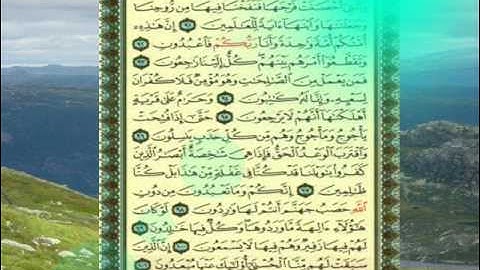 وَٱلَّتِىٓ أَحْصَنَتْ فَرْجَهَا فَنَفَخْنَا فِيهَا مِن رُّوحِنَا
وَجَعَلْنَٰهَا وَٱبْنَهَآ ءَايَةً لِّلْعَٰلَمِينَ ٩١ إِنَّ هَٰذِهِۦٓ
أُمَّتُكُمْ أُمَّةً وَٰحِدَةً وَأَنَا۠ رَبُّكُمْ فَٱعْبُدُونِ ٩٢
وَتَقَطَّعُوٓا۟ أَمْرَهُم بَيْنَهُمْ كُلٌّ إِلَيْنَا رَٰجِعُونَ ٩٣
فَمَن يَعْمَلْ مِنَ ٱلصَّٰلِحَٰتِ وَهُوَ مُؤْمِنٌ فَلَا كُفْرَانَ
لِسَعْيِهِۦ وَإِنَّا لَهُۥ كَٰتِبُونَ ٩٤ وَحَرَٰمٌ عَلَىٰ قَرْيَةٍ
أَهْلَكْنَٰهَآ أَنَّهُمْ لَا يَرْجِعُونَ ٩٥ حَتَّىٰٓ إِذَا فُتِحَتْ
يَأْجُوجُ وَمَأْجُوجُ وَهُم مِّن كُلِّ حَدَبٍ يَنسِلُونَ ٩٦
وَٱقْتَرَبَ ٱلْوَعْدُ ٱلْحَقُّ فَإِذَا هِىَ شَٰخِصَةٌ أَبْصَٰرُ ٱلَّذِينَ
كَفَرُوا۟ يَٰوَيْلَنَا قَدْ كُنَّا فِى غَفْلَةٍ مِّنْ هَٰذَا بَلْ كُنَّا
ظَٰلِمِينَ ٩٧ إِنَّكُمْ وَمَا تَعْبُدُونَ مِن دُونِ
ٱللَّهِ حَصَبُ جَهَنَّمَ أَنتُمْ لَهَا وَٰرِدُونَ ٩٨ لَوْ كَانَ
هَٰٓؤُلَآءِ ءَالِهَةً مَّا وَرَدُوهَا وَكُلٌّ فِيهَا خَٰلِدُونَ ٩٩
لَهُمْ فِيهَا زَفِيرٌ وَهُمْ فِيهَا لَا يَسْمَعُونَ ١٠٠ إِنَّ ٱلَّذِينَ
سَبَقَتْ لَهُم مِّنَّا ٱلْحُسْنَىٰٓ أُو۟لَٰٓئِكَ عَنْهَا مُبْعَدُونَ ١٠١